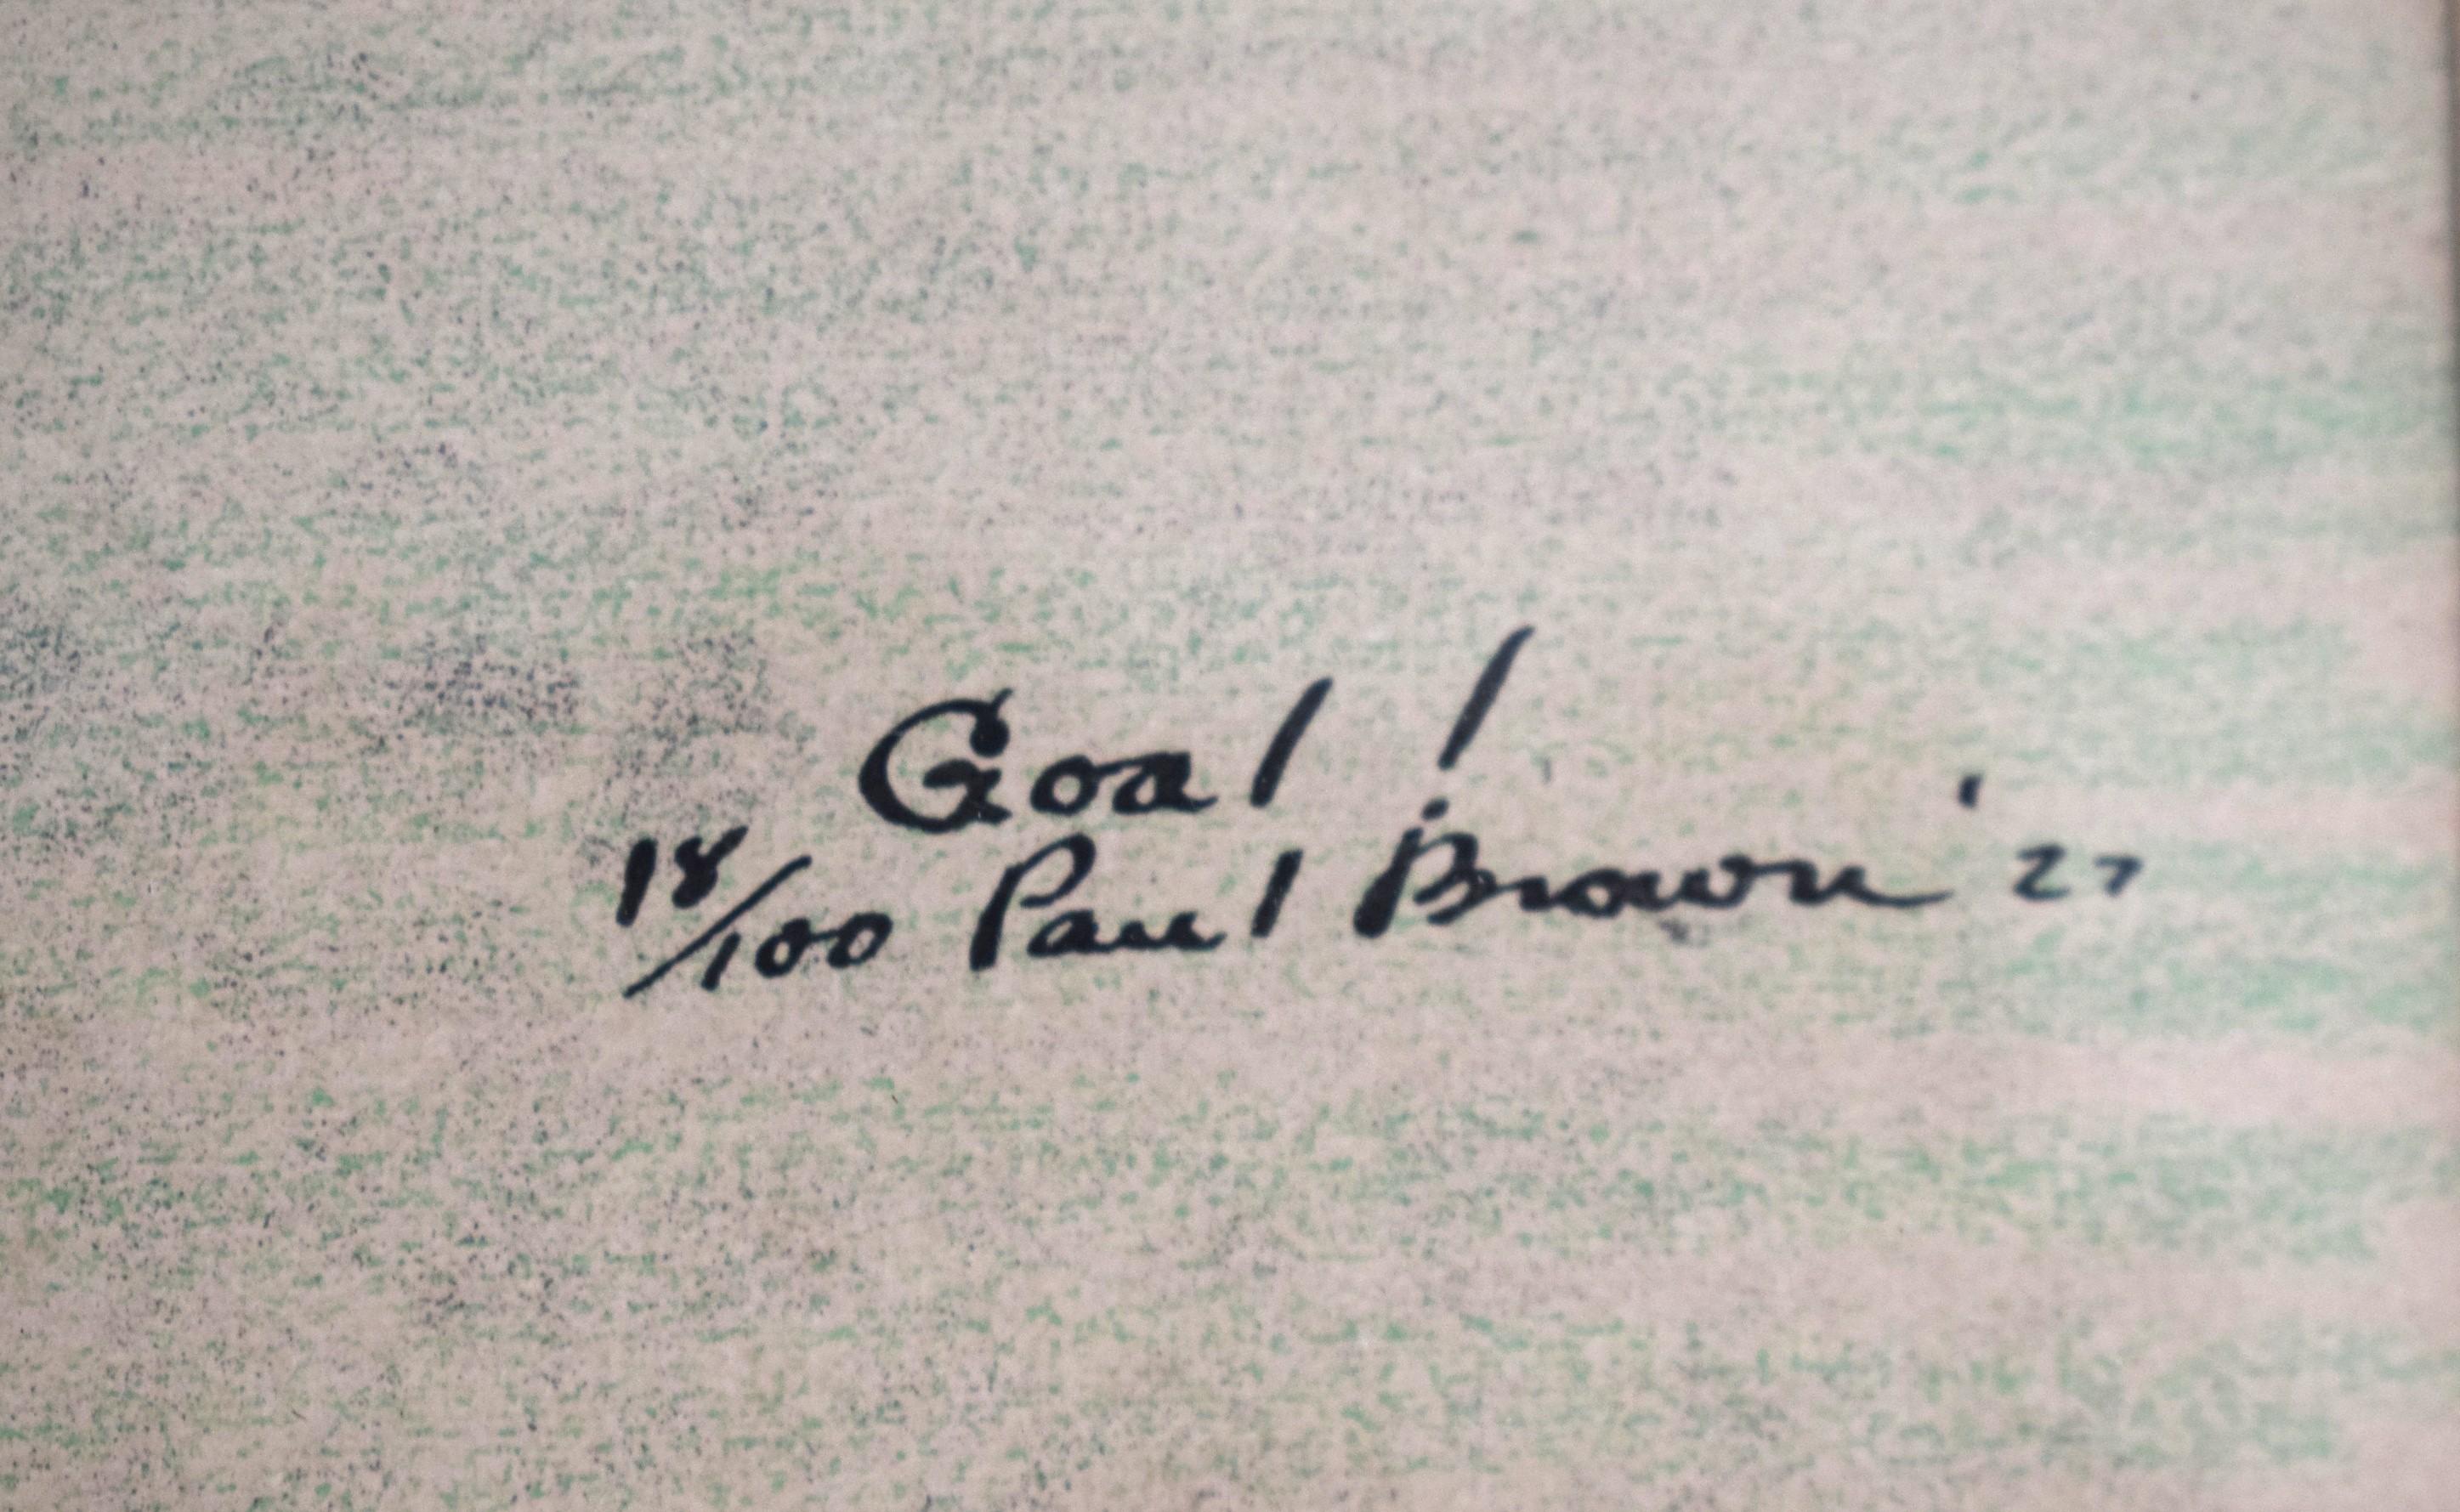 Goal!
18/100 Paul Brown '27